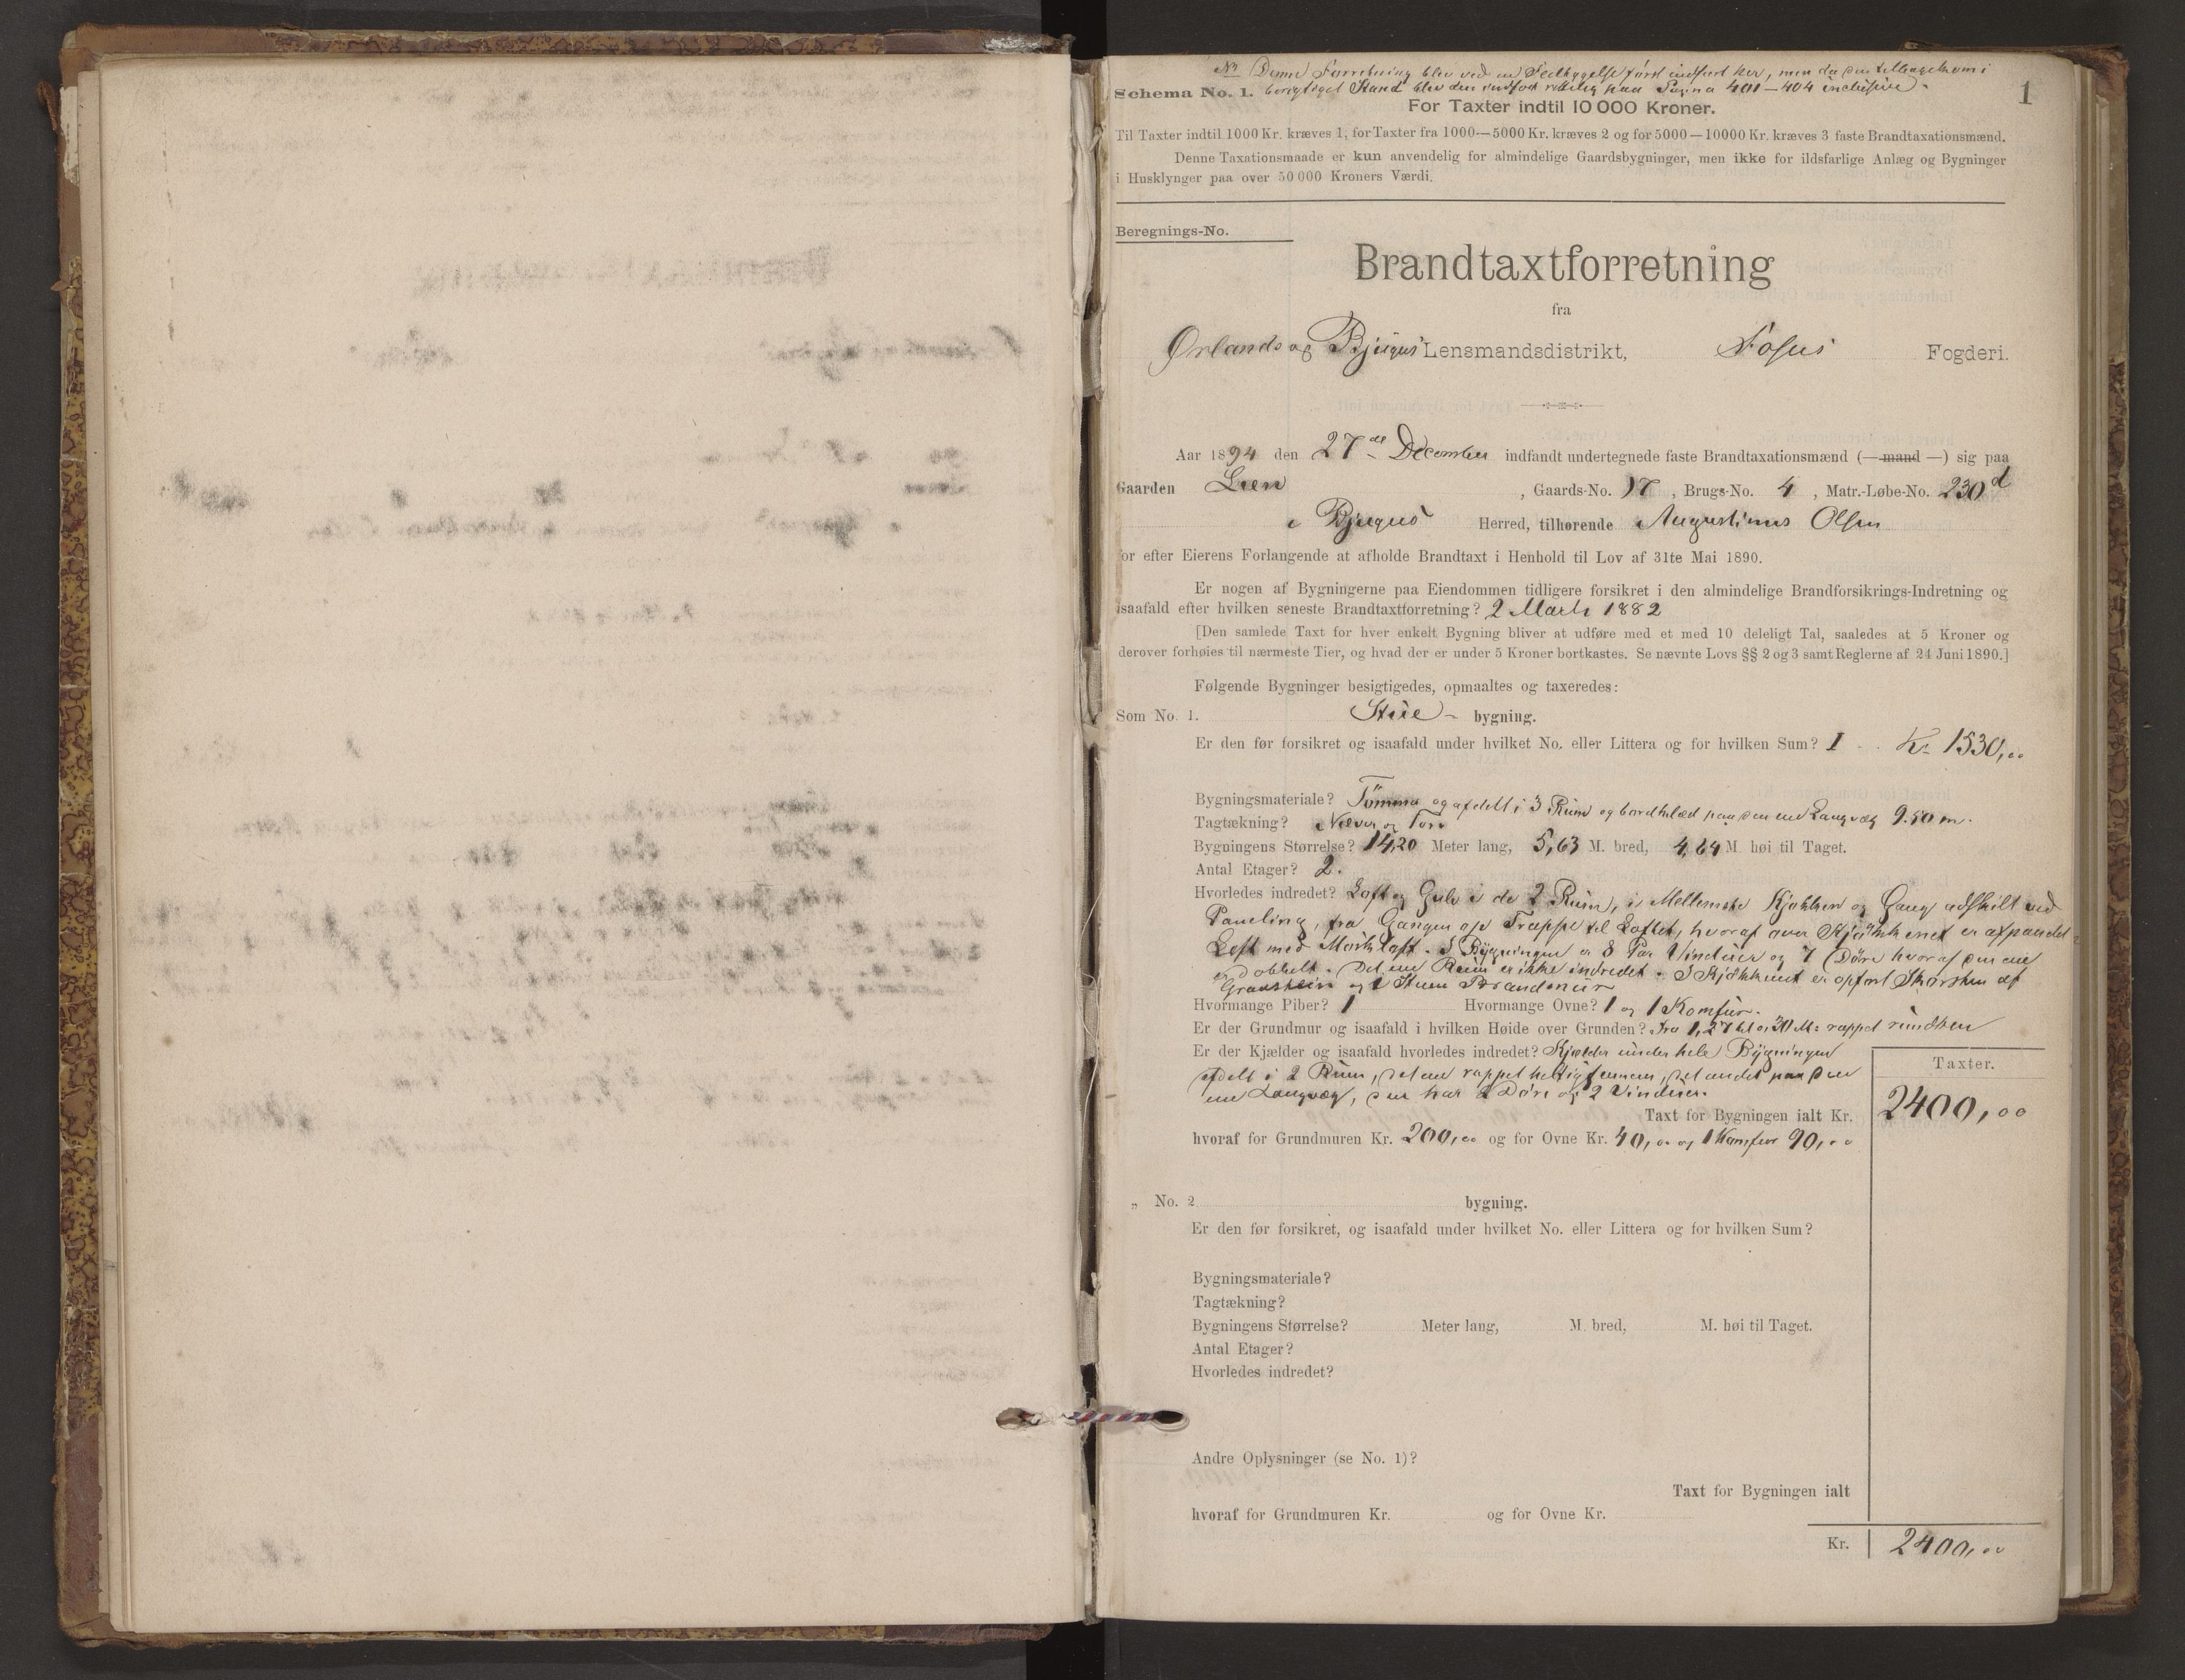 NB Denne Forretning blev ved en Feilbyggelse først indført her, men da den tilbagekom i
Schema No. 1. berigtiget Stand blev den indført rettelig paa Pagina 401–404 inclusive.
1
For Taxter indtil 10 000 Kroner.
Til Taxter indtil 1000 Kr. kræves 1, for Taxter fra 1000–5000 Kr. kræves 2 og for 5000–10000 Kr. kræves 3 faste Brandtaxationsmænd.
Denne Taxationsmaade er kun anvendelig for almindelige Gaardsbygninger, men ikke for ildsfarlige Anlæg og Bygninger
i Husklynger paa over 50 000 Kroners Værdi.
Beregnings-No.
Brandtaxtforretning
fra
Ørlands og Bjugns Lensmandsdistrikt, Fosens Fogderi.
Aar 1894 den 27de December indfandt undertegnede faste Brandtaxationsmænd (— mand —) sig paa
Gaarden Lien, Gaards-No. 17, Brugs-No. 4, Matr.-Løbe-No. 230d
i Bjugns Herred, tilhørende Augustinus Olsen
for efter Eierens Forlangende at afholde Brandtaxt i Henhold til Lov af 31te Mai 1890.
Er nogen af Bygningerne paa Eiendommen tidligere forsikret i den almindelige Brandforsikrings-Indretning og
isaafald efter hvilken seneste Brandtaxtforretning? 2 Marts 1882
[Den samlede Taxt for hver enkelt Bygning bliver at udføre med et med 10 deleligt Tal, saaledes at 5 Kroner og
derover forhøies til nærmeste Tier, og hvad der er under 5 Kroner bortkastes. Se nævnte Lovs §§ 2 og 3 samt Reglerne af 24 Juni 1890.]
Følgende Bygninger besigtigedes, opmaaltes og taxeredes:
Som No. 1. Stue- bygning.
Er den før forsikret og isaafald under hvilket No. eller Littera og for hvilken Sum? I Kr 1530,00
Bygningsmateriale? Tømmer og afdelt i 3 Rum og bordklæd paa den ene Langvæg 9.50 m.
Tagtækning? Næver og Torv
Bygningens Størrelse? 14,20 Meter lang, 5,63 M. bred, 4,64 M. høi til Taget.
Antal Etager? 2.
Hvorledes indredet? Loft og Gulv i de 2 Rum, i Mellemste Kjøkken og Gang adskilt ved
Paneling, fra Gangen op Trappe til Loftet, hvoraf over Kjøkkenet er afpanelet
Loft med Mørkloft. I Bygningen er 8 Par Vinduer og 7 Døre hvoraf den ene
dobbelt. Det ene Rum er ikke indredet. I Kjøkkenet er opført Skorsten af
Graasten og 1 Steen Brandmur
Hvormange Piber? 1 Hvormange Ovne? 1 og 1 Komfur.
Er der Grundmur og isaafald i hvilken Høide over Grunden? Fra 1,27 til 0,30 M: rappet rundten
Er der Kjælder og isaafald hvorledes indredet? Kjælder under hele Bygningen
afdelt i 2 Rum, det ene rappet heltigjennem, det andet paa den
ene Langvæg, den har 2 Døre og 2 Vinduer.
Taxter.
Taxt for Bygningen ialt Kr. 2400,00
hvoraf for Grundmuren Kr. 200,00 og for Ovne Kr. 40,00 og 1 Komfur 90,00
„ No. 2 bygning.
Er den før forsikret, og isaafald under hvilket No. eller Littera og for hvilken Sum?
Bygningsmateriale?
Tagtækning?
Bygningens Størrelse? Meter lang, M. bred, M. høi til Taget.
Antal Etager?
Hvorledes indredet?
Andre Oplysninger (se No. 1)?
Taxt for Bygningen ialt
hvoraf for Grundmuren Kr. og for Ovne Kr.
Kr. 2400,00